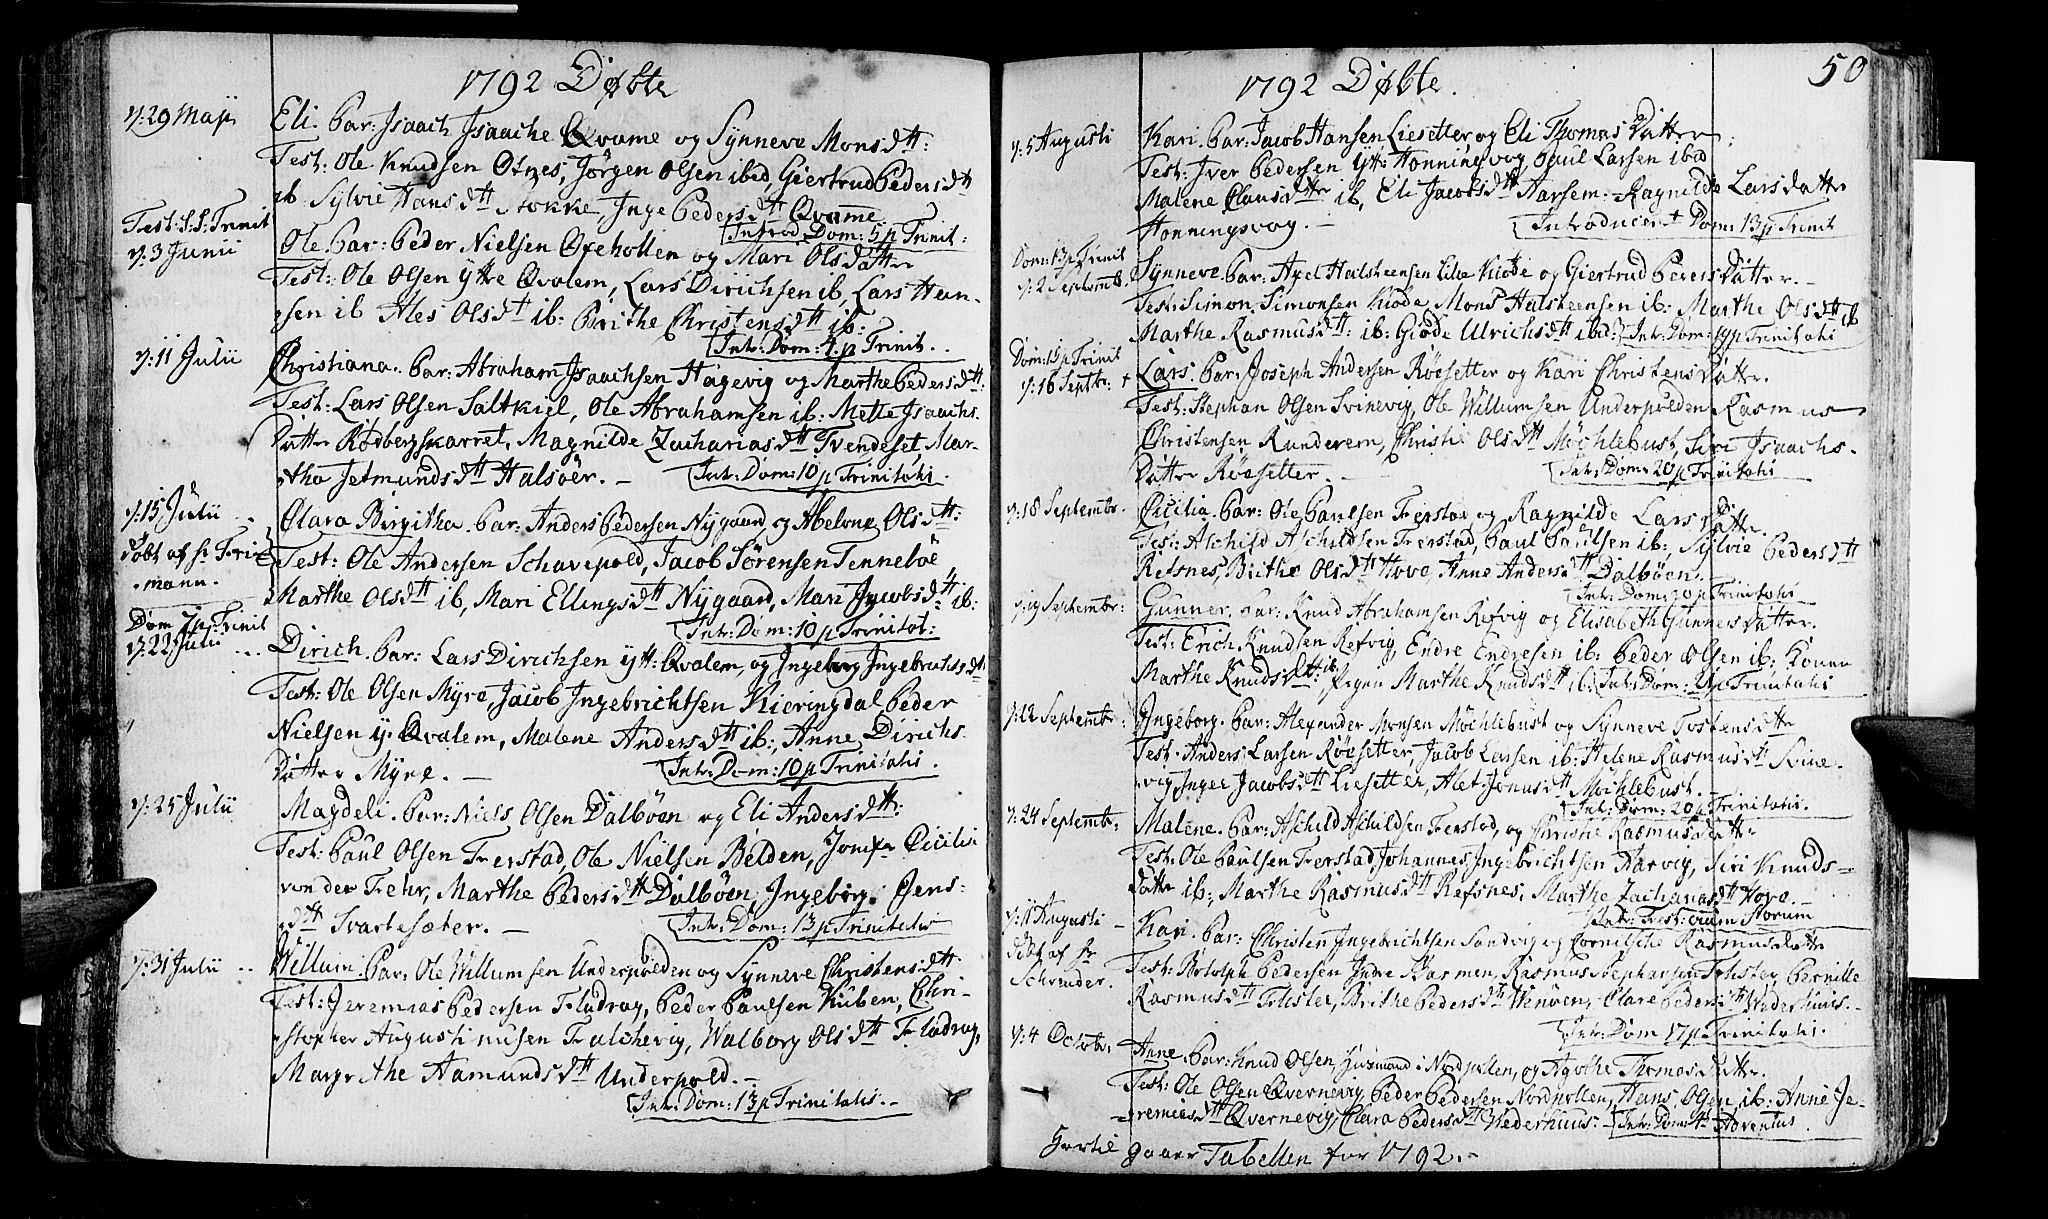 1792 Døbte
d: 29 Maji
Eli. Par: Isaach Isaachs Qvame og Synneve Monsdtt:
Test: Ole Knudsen Otnes, Jørgen Olsen ibid, Giertrud Pedersdtt
ib Sylvie Hansdtt Stokke, Inge Pedersdtt Qvame.
Introd. Dom: 5 p Trinit:
Fest: S.S. Trinit
d: 3 Junii
Ole Par: Peder Nielsen Oxeholten og Mari Olsdatter
Test: Ole Olsen Ytre Qvalem, Lars Dirichsen ib, Lars Han-
sen ib Ales Olsdtt ib: Brithe Christensdtt ib:
Intr: Dom: 4 p Trinit.
d: 11 Julii
Christiana. Par: Abraham Isaachsen Hagevig og Marthe Pedersdtt:
Test: Lars Olsen Saltkiel, Ole Abrahamsen ib: Mette Isaachs
Datter Rødbergskarret, Magnilde Zachariasdtt Tvendeset, Mar-
tha Jetmundsdtt Halsøer. —
Intr: Dom: 10 p Trinitatis.
d: 15 Julii
døbt af hr
mann.
Clara Birgitha. Par: Anders Pedersen Nygaard og Abelone Olsdtt:
Test: Ole Andersen Schavepold, Jacob Sørensen Tennebøe
Marthe Olsdtt ib, Mari Ellingsdtt Nygaard, Mari Jacobsdtt ib:
Intr: Dom: 10 p Trinitat:
Dom 7 p Trinit
d: 22 Julii
Dirich. Par: Lars Dirichsen ytt: Qvalem, og Ingeborg Ingebrichtsdtt
Test: Ole Olsen Myre, Jacob Ingebrichtsen Kieringdal Peder
Nielsen y: Qvalem, Malene Andersdtt ib:, Anne Dirichs-
Datter Myre. —
Intr: Dom: 10 p Trinitatis.
d: 25 Julii
Magdeli. Par: Niels Olsen Dalbøen og Eli Andersdtt:
Test: Paul Olsen Frerstad, Ole Nielsen Belden, Jomfr Cicilie
von der Fehr, Marthe Pedersdtt Dalbøen, Ingeborg Jens-
dtt Svartesæter. —
Intr: Dom: 13 p Trinitatis
d: 31 Julii
Willum. Par: Ole Willumsen Underpolden og Synneve Christensdtt:
Test: Jeremias Pedersen Fladrag, Peder Paulsen Kuben, Chri-
stopher Augustinusen Falchevig, Walborg Olsdtt Fladrag,
Margrethe Aamundsdtt Underpold. —
Intr: Dom: 13 p Trinitatis. —
1792 Døbte.
50
d: 5 Augusti
Kari. Par: Jacob Hansen Liesetter og Eli Thomas Datter
Test: Iver Pedersen Ytt: Honningsvog Paul Larsen ibid
Malene Clausdtt ib, Eli Jacobsdtt Aarsem. Ragnilde Larsdatter
Honningsvog. —
Introducert Dom: 13 p Trinit
Dom: 13 p Trinit
d: 2 Septemb.
Synneve. Par: Axel Halsteensen Lille Kiøde og Giertrud Peersdatter. —
Test: Simon Simonsen Kiøde, Mons Halsteensen ib: Marthe Olsdtt ib
Marthe Rasmusdtt: ib: Giøde Ulrichsdtt ibid: Intr: Dom: 19 p Trinitatis
Dom: 15 p Trinit
d: 16 Septbr:
Lars. Par: Joseph Andersen Røesetter og Kari Christensdatter.
Test: Stephan Olsen Svinevig, Ole Willumsen Underpolden Rasmus
Christensen Runderem, Christie Olsdtt Møchlebust, Siri Isaachs-
Datter Røesetter. —
Intr: Dom: 20 p Trinitatis
d: 18 Septembr.
Cicilia. Par: Ole Paulsen Frerstad og Ragnilde Larsdatter
Test: Aschild Aschildsen Frerstad, Paul Paulsen ib:, Sylvie Pedersdtt
Refsnes, Brithe Olsdtt Hove, Anne Andersdtt Dalbøen. —
Intr: Dom: 20 p Trinitatis
d: 19 Septembr:
Gunner. Par: Knud Abrahamsen Refvig og Elisabeth Gunnersdatter.
Test: Erich Knudsen Refvig, Endre Endresen ib: Peder Olsen ib: Konen
Marthe Knudsdtt: ib. Pigen Marthe Knudsdtt ib: Intr: Dom: p Trinitatis
d: 12 Septembr:
Ingeborg. Par: Alexander Monsen Møchlebust og Synneve Tostensdtt
Test: Anders Larsen Røesetter, Jacob Larsen ib: Helene Rasmusdtt Svine-
vig Inger Jacobsdtt Liesetter, Alet Jonusdtt Møchlebust. —
Intr: Dom: 20 p Trinitatis.
d: 24 Septembr:
Malene. Par: Aschild Aschildsen Frerstad, og Christie Rasmusdatter
Test: Ole Paulsen Frerstad, Johannes Ingebrichtsen Aarvig, Siri Knuds-
datter ib:, Marthe Rasmusdtt Refsnes, Marthe Zachariasdtt Hove. —
Intr: Fest: omnium Storum
d: 11 Augusti —
døbt af hr
Schrøder.
Kari. Par: Christen Ingebrichtsen Sandvig og Cornitsche Rasmusdatter
Test: Botolph Pedersen Indre Barmen, Rasmus Stephansen Felster, Pernille
Rasmusdtt Felster, Brithe Pedersdtt Wenøen, Clare Pedersdtt Wederhuus. —
Intr: Dom 17 p Trinitatis.
d: 4 Octobr.
Anne. Par: Knud Olsen, Huusmand i Nordpollen, og Agothe Thomasdatter.
Test: Ole Olsen Qvernevig, Peder Pedersen Nordpollen, Hans Olsen ib: Anne Je-
remiasdtt Qvernevig, Clara Pedersdtt Wederhuus. — Intr: Dom: Adventus.
Hertil gaaer Tabellen for 1792. —